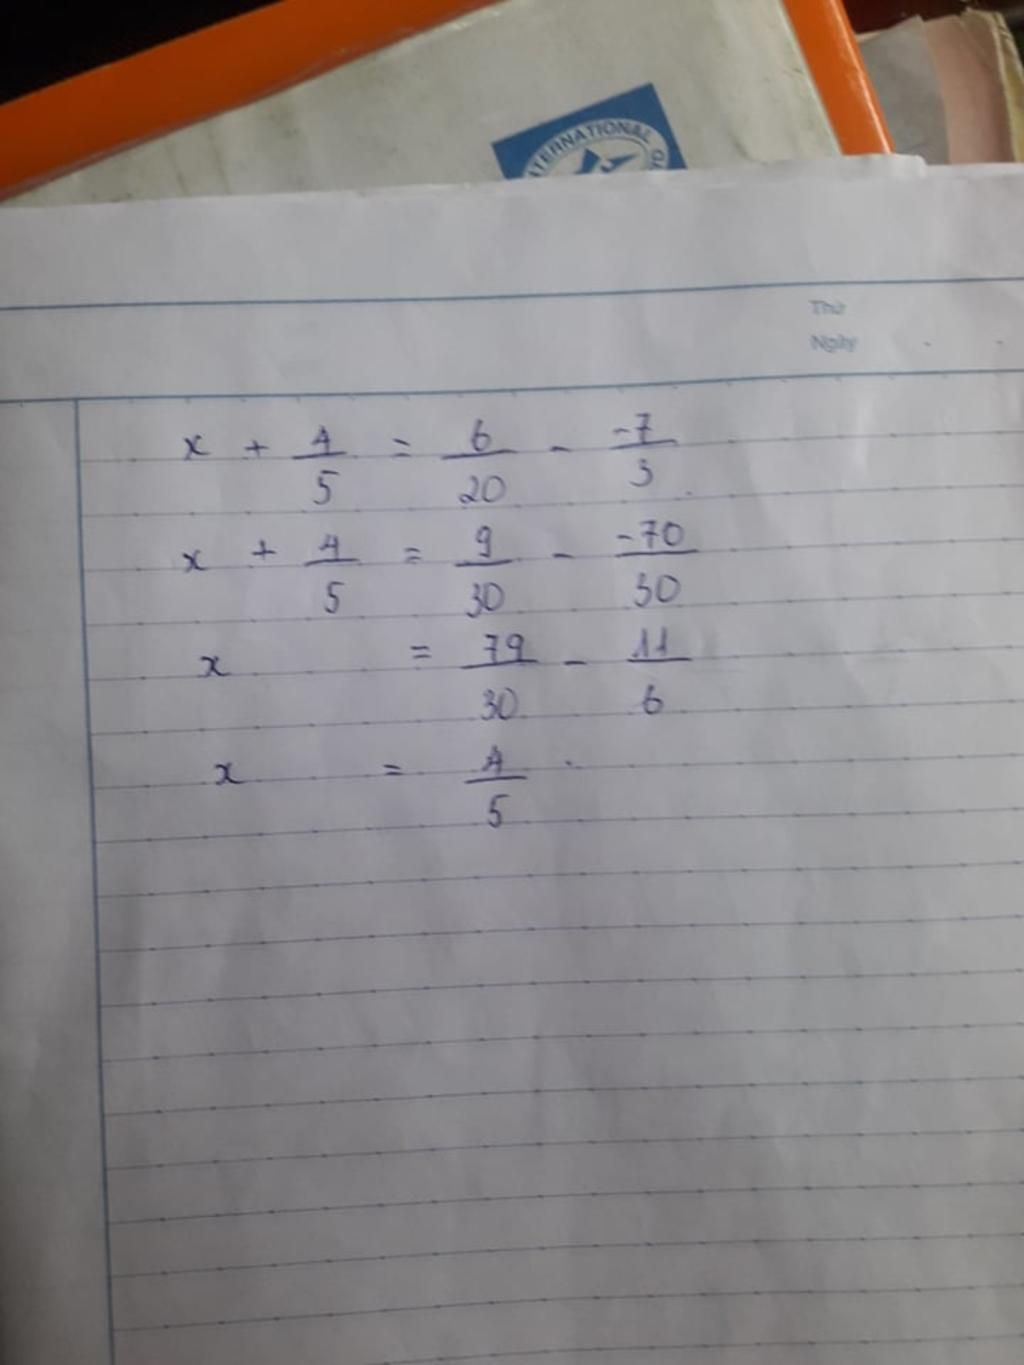 INTERNATIONAL
Thứ
Ngày
x + 4/5 = 6/20 - -7/3
x + 4/5 = 9/30 - -70/30
x = 79/30 - 11/6
x = 4/5